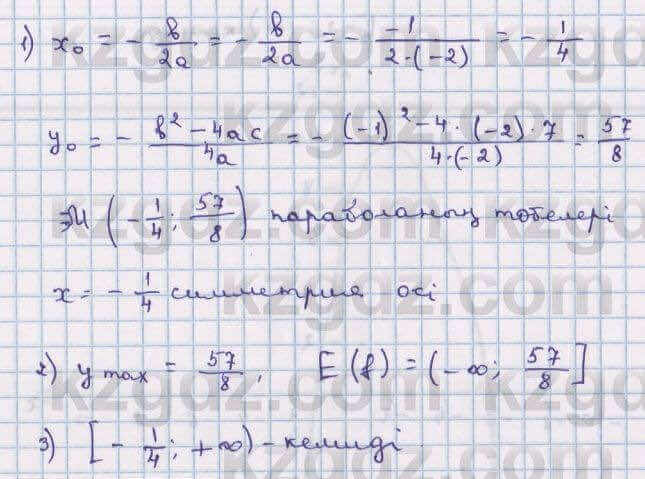 1) x₀ = - в/2a = - в/2a = - -1/2·(-2) = - 1/4
y₀ = - в² - 4ac/4a = - (-1)² - 4·(-2)·7/4·(-2) = 57/8
(- 1/4; 57/8) параболаның төбелері
x = - 1/4 симметрия осі
2) y max = 57/8, E(f) = (-∞; 57/8]
3) [- 1/4; +∞) - кемиді
kzgdz.com